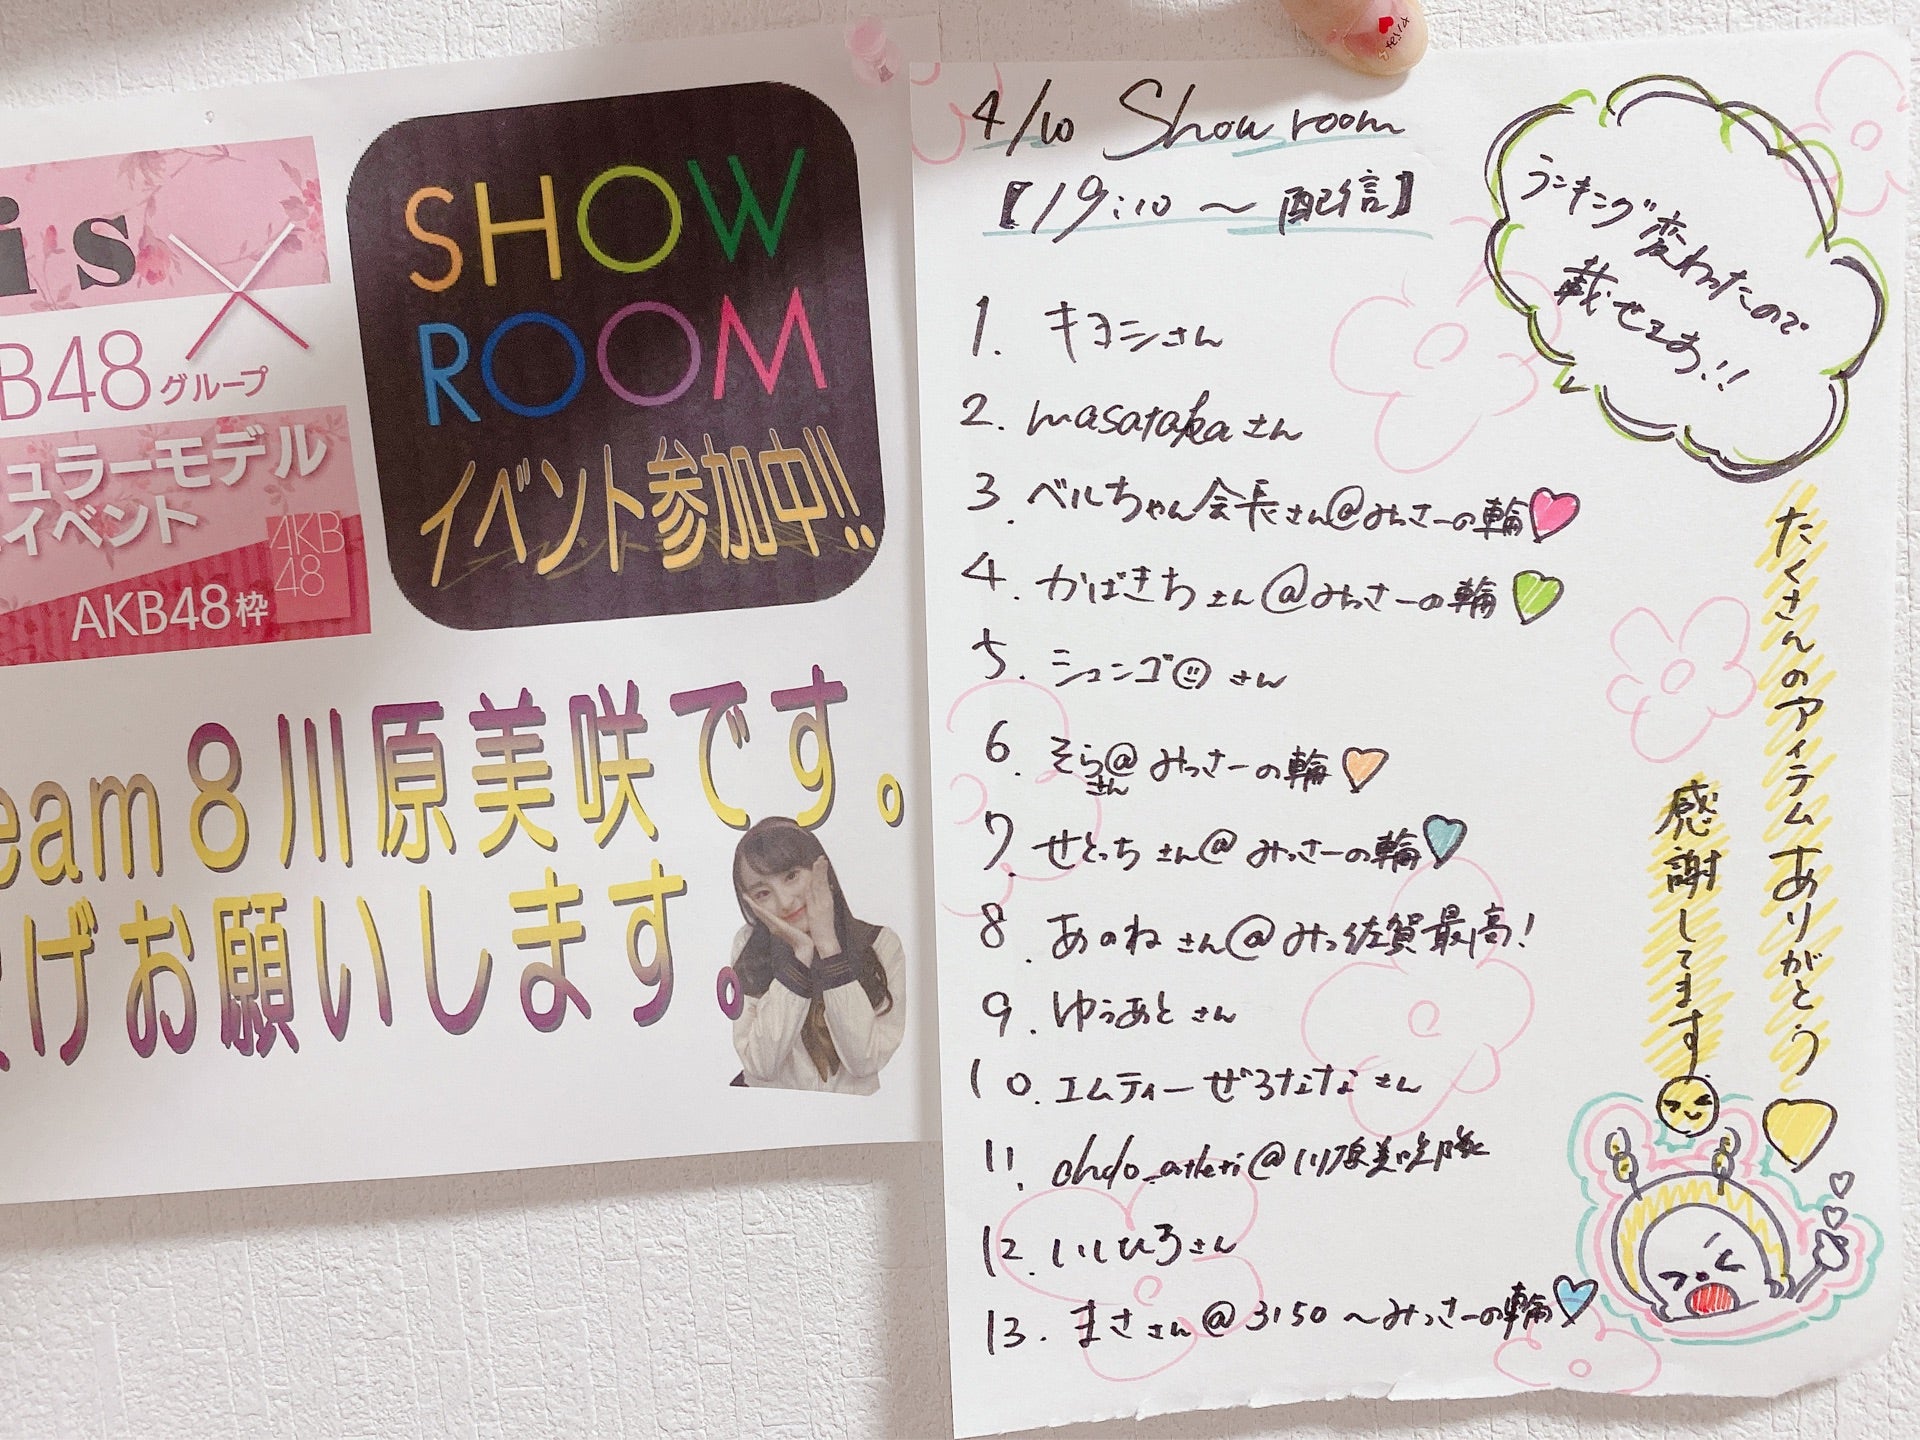 is ×
B48グループ
ュラーモデル
イベント
AKB
48
AKB48枠
SHOW
ROOM
イベント参加中!!
eam8川原美咲です。
げお願いします。
4/10 Showroom
【19:10〜配信】
ランキング変わったので
載せてあ!!
1. キヨシさん
2. masatakaさん
3. ベルちゃん会長さん@みっさーの輪
4. かばきちさん@みっさーの輪
5. シュンゴさん
6. そらさん@みっさーの輪
7. せとっちさん@みっさーの輪
8. あのねさん@みっ佐賀最高!
9. ゆうあとさん
10. エムティーぜろななさん
11. ohdo_arteri@川原美咲隊
12. いしひろさん
13. まささん@3150〜みっさーの輪
たくさんのアイテムありがとう
感謝してます